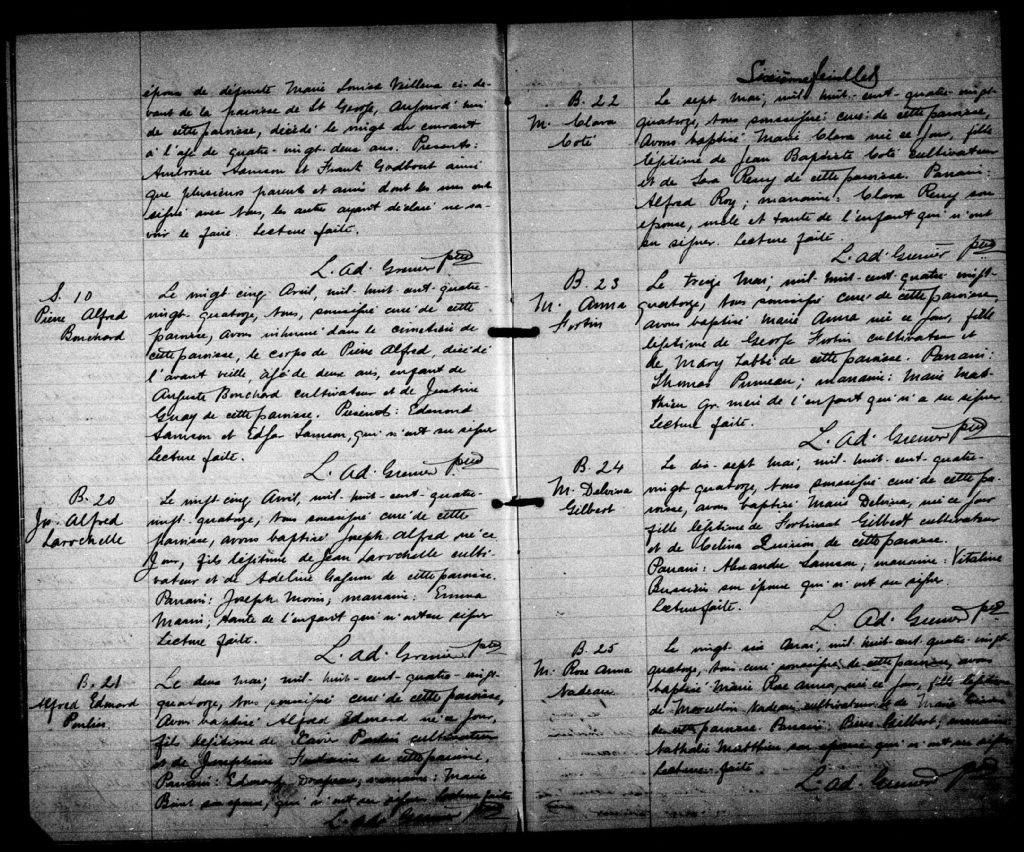 époux de défunte Marie Louise Veilleux ci-de-
vant de la paroisse de St George, Aujourd'hui
de cette paroisse, décédé le vingt du courant
à l'age de quatre-vingt deux ans. Presents:
Ambroise Samson et Frank Godbout ainsi
que plusieurs parents et amis dont les uns ont
signé avec nous, les autres ayant déclaré ne sa-
voir le faire. Lecture faite.
L. Ad. Grenier ptre
S. 10
Pierre Alfred
Bouchard
Le vingt cinq Avril, mil huit cent quatre-
vingt quatorze, nous, soussigné curé de cette
paroisse, avons inhumé dans le cimetière de
cette paroisse, le corps de Pierre Alfred, décédé
l'avant veille, agé de deux ans, enfant de
Auguste Bouchard cultivateur et de Justine
Guay de cette paroisse. Présents: Edmond
Samson et Edgar Samson, qui n'ont su signer
Lecture faite.
L. Ad. Grenier ptre
B. 20
Js. Alfred
Larochelle
Le vingt cinq Avril, mil huit-cent-quatre-
vingt-quatorze, nous soussigné curé de cette
paroisse, avons baptisé Joseph Alfred né ce
Jour, fils légitime de Jean Larochelle culti-
vateur et de Adeline Gagnon de cette paroisse.
Parrain: Joseph Morin; marraine: Emma
Morin; tante de l'enfant qui n'ont su signer
Lecture faite.
L. Ad. Grenier ptre
B. 21
Alfred Edmond
Poulin
Le deux Mai; mil-huit-cent-quatre-vingt
quatorze, nous, soussigné curé de cette paroisse,
Avons baptisé Alfred Edmond né ce Jour,
fils légitime de Xavier Poulin cultivateur
et de Josephine Fontaine de cette paroisse.
Parrain: Edmond Drapeau; marraine: Marie
son epouse, qui n'ont su signer. Lecture faite
L. Ad. Grenier ptre
Sixième feuillet
B. 22
M. Clara
Coté
Le sept Mai, mil-huit-cent-quatre-vingt
quatorze, nous soussigné curé de cette paroisse,
Avons baptisé Marie Clara née ce jour, fille
légitime de Jean Baptiste Coté cultivateur
et de Lora Remy de cette paroisse. Parrain:
Alfred Roy; marraine: Clara Remy son
epouse, oncle et tante de l'enfant qui n'ont
su signer. Lecture faite.
L. Ad. Grenier ptre
B. 23
M. Anna
Fortin
Le treize Mai, mil-huit-cent quatre-vingt-
quatorze, nous, soussigné curé de cette paroisse,
avons baptisé Marie Anna née ce jour, fille
légitime de George Fortin cultivateur et
de Mary Labbé de cette paroisse. Parrain:
Thomas Pruneau; marraine: Marie Mat-
thieu Gr. mère de l'enfant qui n'a su signer
Lecture faite.
L. Ad. Grenier ptre
B. 24
M. Delvina
Gilbert
Le dix-sept Mai, mil-huit-cent-quatre-
vingt quatorze, nous soussigné curé de cette pa-
roisse, avons baptisé Marie Delvina, née ce jour
fille légitime de Fortunat Gilbert cultivateur
et de Celina Quirion de cette paroisse.
Parrain: Alexandre Samson; marraine: Vitaline
Bussière son épouse qui n'ont su signer.
Lecture faite.
L. Ad. Grenier ptre
B. 25
M. Rose Anna
Nadeau
Le vingt-six Mai; mil huit-cent-quatre-vingt
quatorze, nous curé soussigné de cette paroisse, avons
baptisé Marie Rose Anna, née ce jour, fille légitime
de Marcellin Nadeau, cultivateur et de Marie
de cette paroisse. Parrain: Gilbert; marraine:
Nathalie Matthieu son épouse qui n'ont su signer
Lecture faite
L. Ad. Grenier ptre